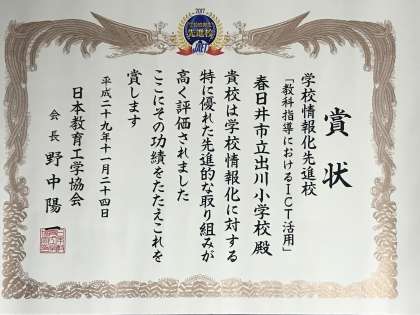 2017
学校情報化
先進校
JAET
賞状
学校情報化先進校
「教科指導におけるICT活用」
春日井市立出川小学校 殿
貴校は学校情報化に対する
特に優れた先進的な取り組みが
高く評価されました
ここにその功績をたたえこれを
賞します
平成二十九年十一月二十四日
日本教育工学協会
会長 野中陽一